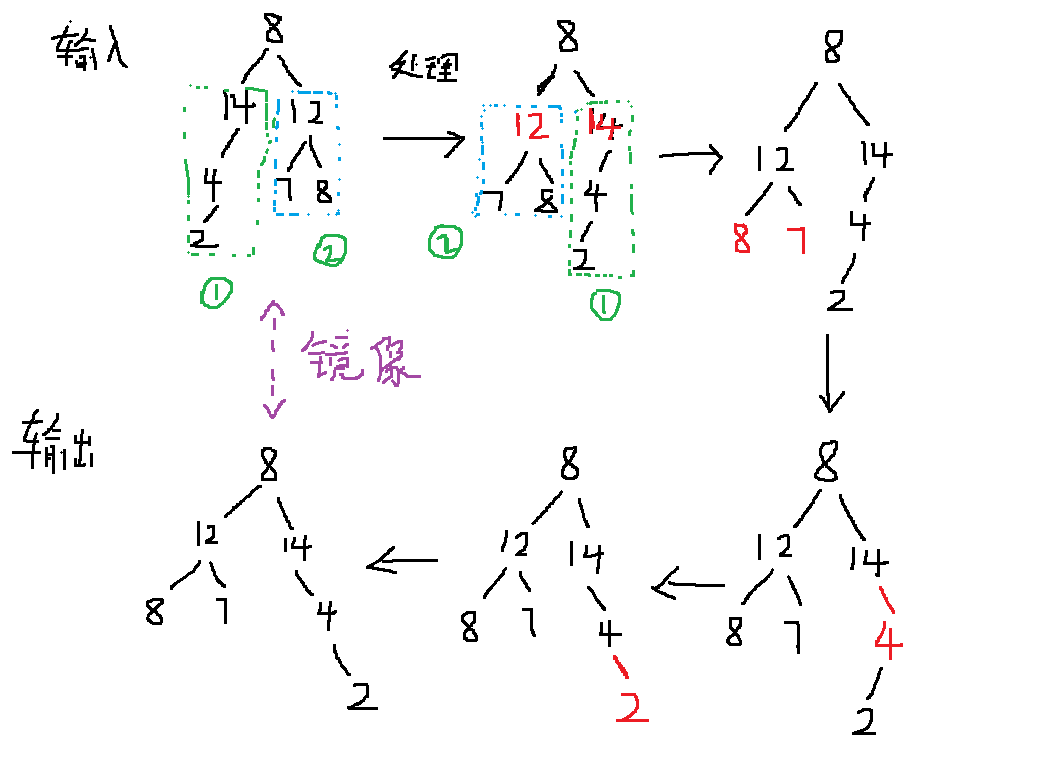 输入
8
14 12
4 7 8
2
① ②
处理
8
12 14
7 8 4
2
② ①
8
12 14
8 7 4
2
镜像
输出
8
12 14
8 7 4
2
8
12 14
8 7 4
2
8
12 14
8 7 4
2